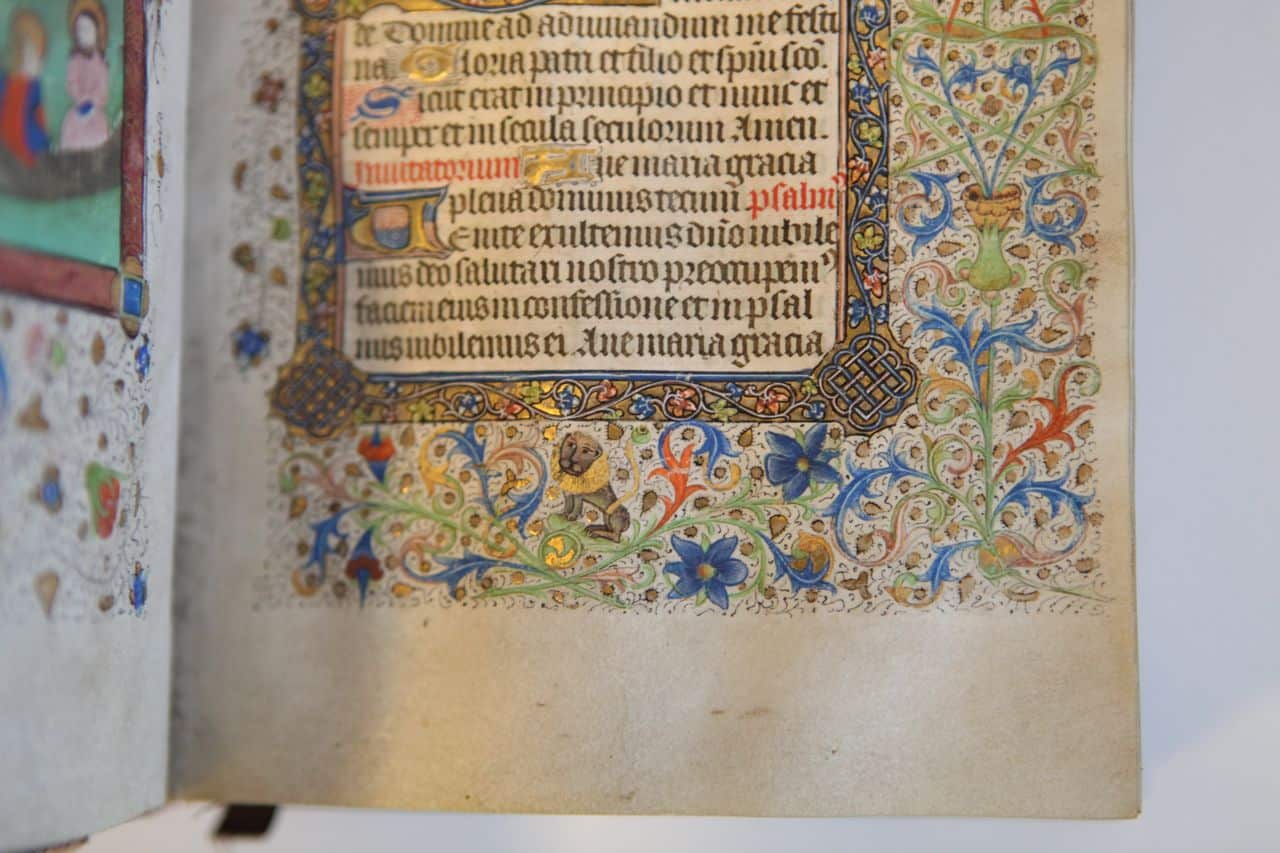 de Domine ad adiuuandum me festi
na. Gloria patri et filio et spiritui sco.
Sicut erat in principio et nunc et
semper et in secula seculorum Amen.
Inuitatorium Aue maria gracia
plena dominus tecum psalm⁹
Uenite exultemus dño iubile
mus deo salutari nostro preoccupem⁹
faciem eius in confessione et in psal
mis iubilemus ei. Aue maria gracia